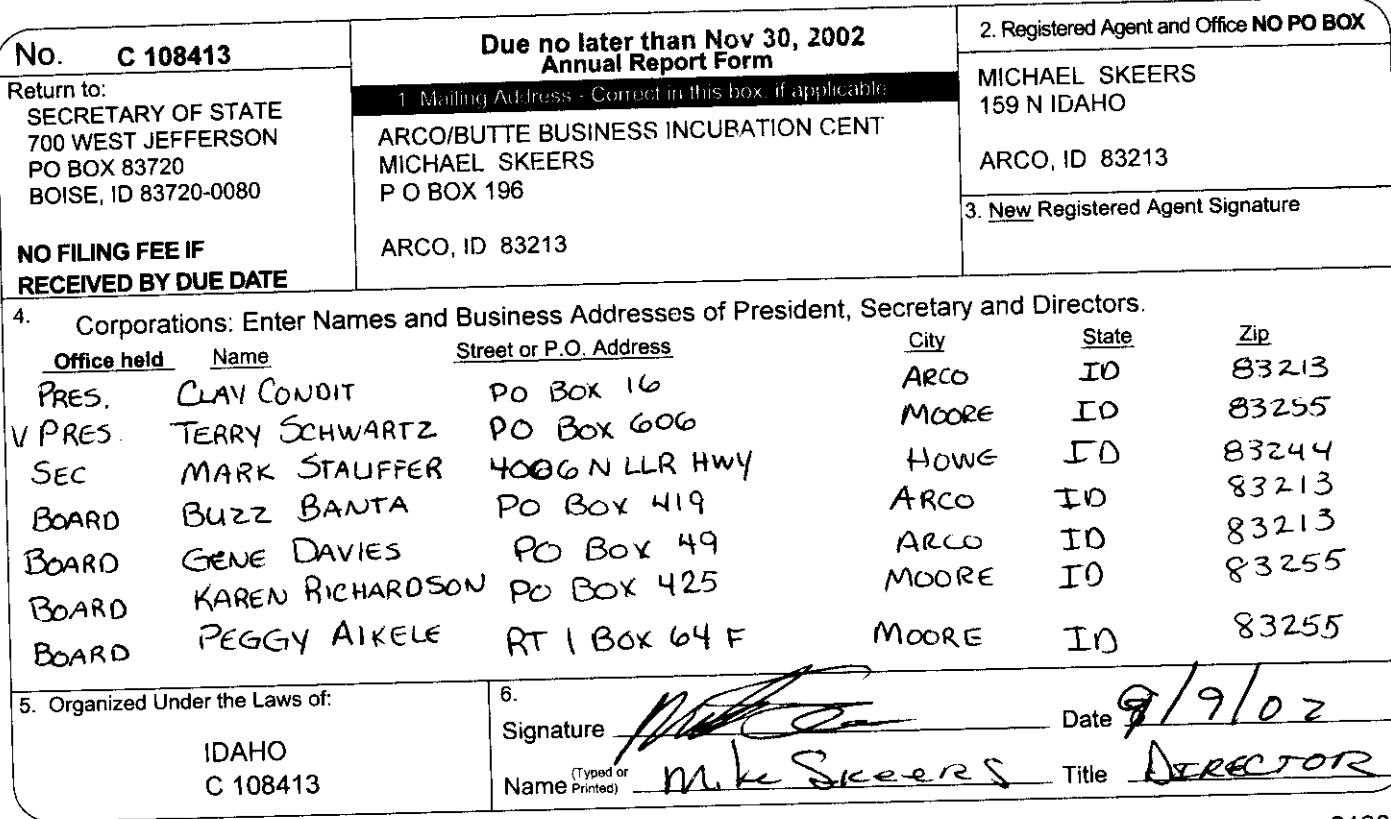 No. C 108413
Return to:
SECRETARY OF STATE
700 WEST JEFFERSON
PO BOX 83720
BOISE, ID 83720-0080
NO FILING FEE IF
RECEIVED BY DUE DATE
Due no later than Nov 30, 2002
Annual Report Form
1 Mailing Address - Correct in this box, if applicable
ARCO/BUTTE BUSINESS INCUBATION CENT
MICHAEL SKEERS
P O BOX 196
ARCO, ID 83213
2. Registered Agent and Office NO PO BOX
MICHAEL SKEERS
159 N IDAHO
ARCO, ID 83213
3. New Registered Agent Signature
4. Corporations: Enter Names and Business Addresses of President, Secretary and Directors.
Office held Name Street or P.O. Address City State Zip
PRES. CLAY CONDIT PO BOX 16 ARCO ID 83213
V PRES. TERRY SCHWARTZ PO BOX 606 MOORE ID 83255
SEC MARK STAUFFER 4006 N LLR HWY HOWE ID 83244
BOARD BUZZ BANTA PO BOX 419 ARCO ID 83213
BOARD GENE DAVIES PO BOX 49 ARCO ID 83213
BOARD KAREN RICHARDSON PO BOX 425 MOORE ID 83255
BOARD PEGGY AIKELE RT 1 BOX 64 F MOORE ID 83255
5. Organized Under the Laws of:
IDAHO
C 108413
6.
Signature Date /9/02
Name (Typed or Printed) Mike Skeers Title DIRECTOR